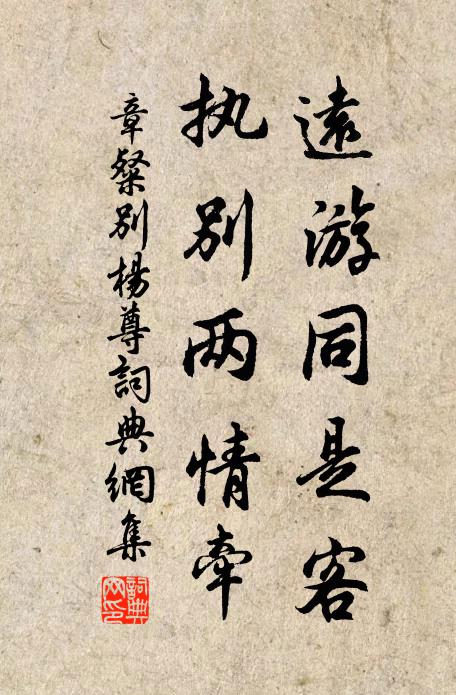 遠游同是客
执别两情牵
章粲别楊尊詞典網集
詞典
网印